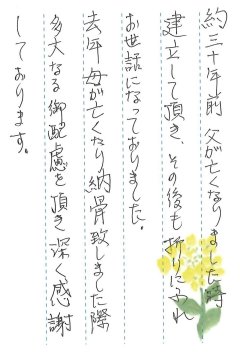 約三十年前 父が亡くなりました時
建立して頂き、その後も折りにふれ
お世話になっておりました。
去年 母が亡くなり納骨致しました際
多大なる御配慮を頂き深く感謝
しております。